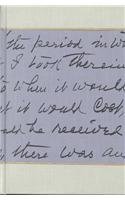 the period in w
I took therein
to when it would
it would cost,
he received
there was an